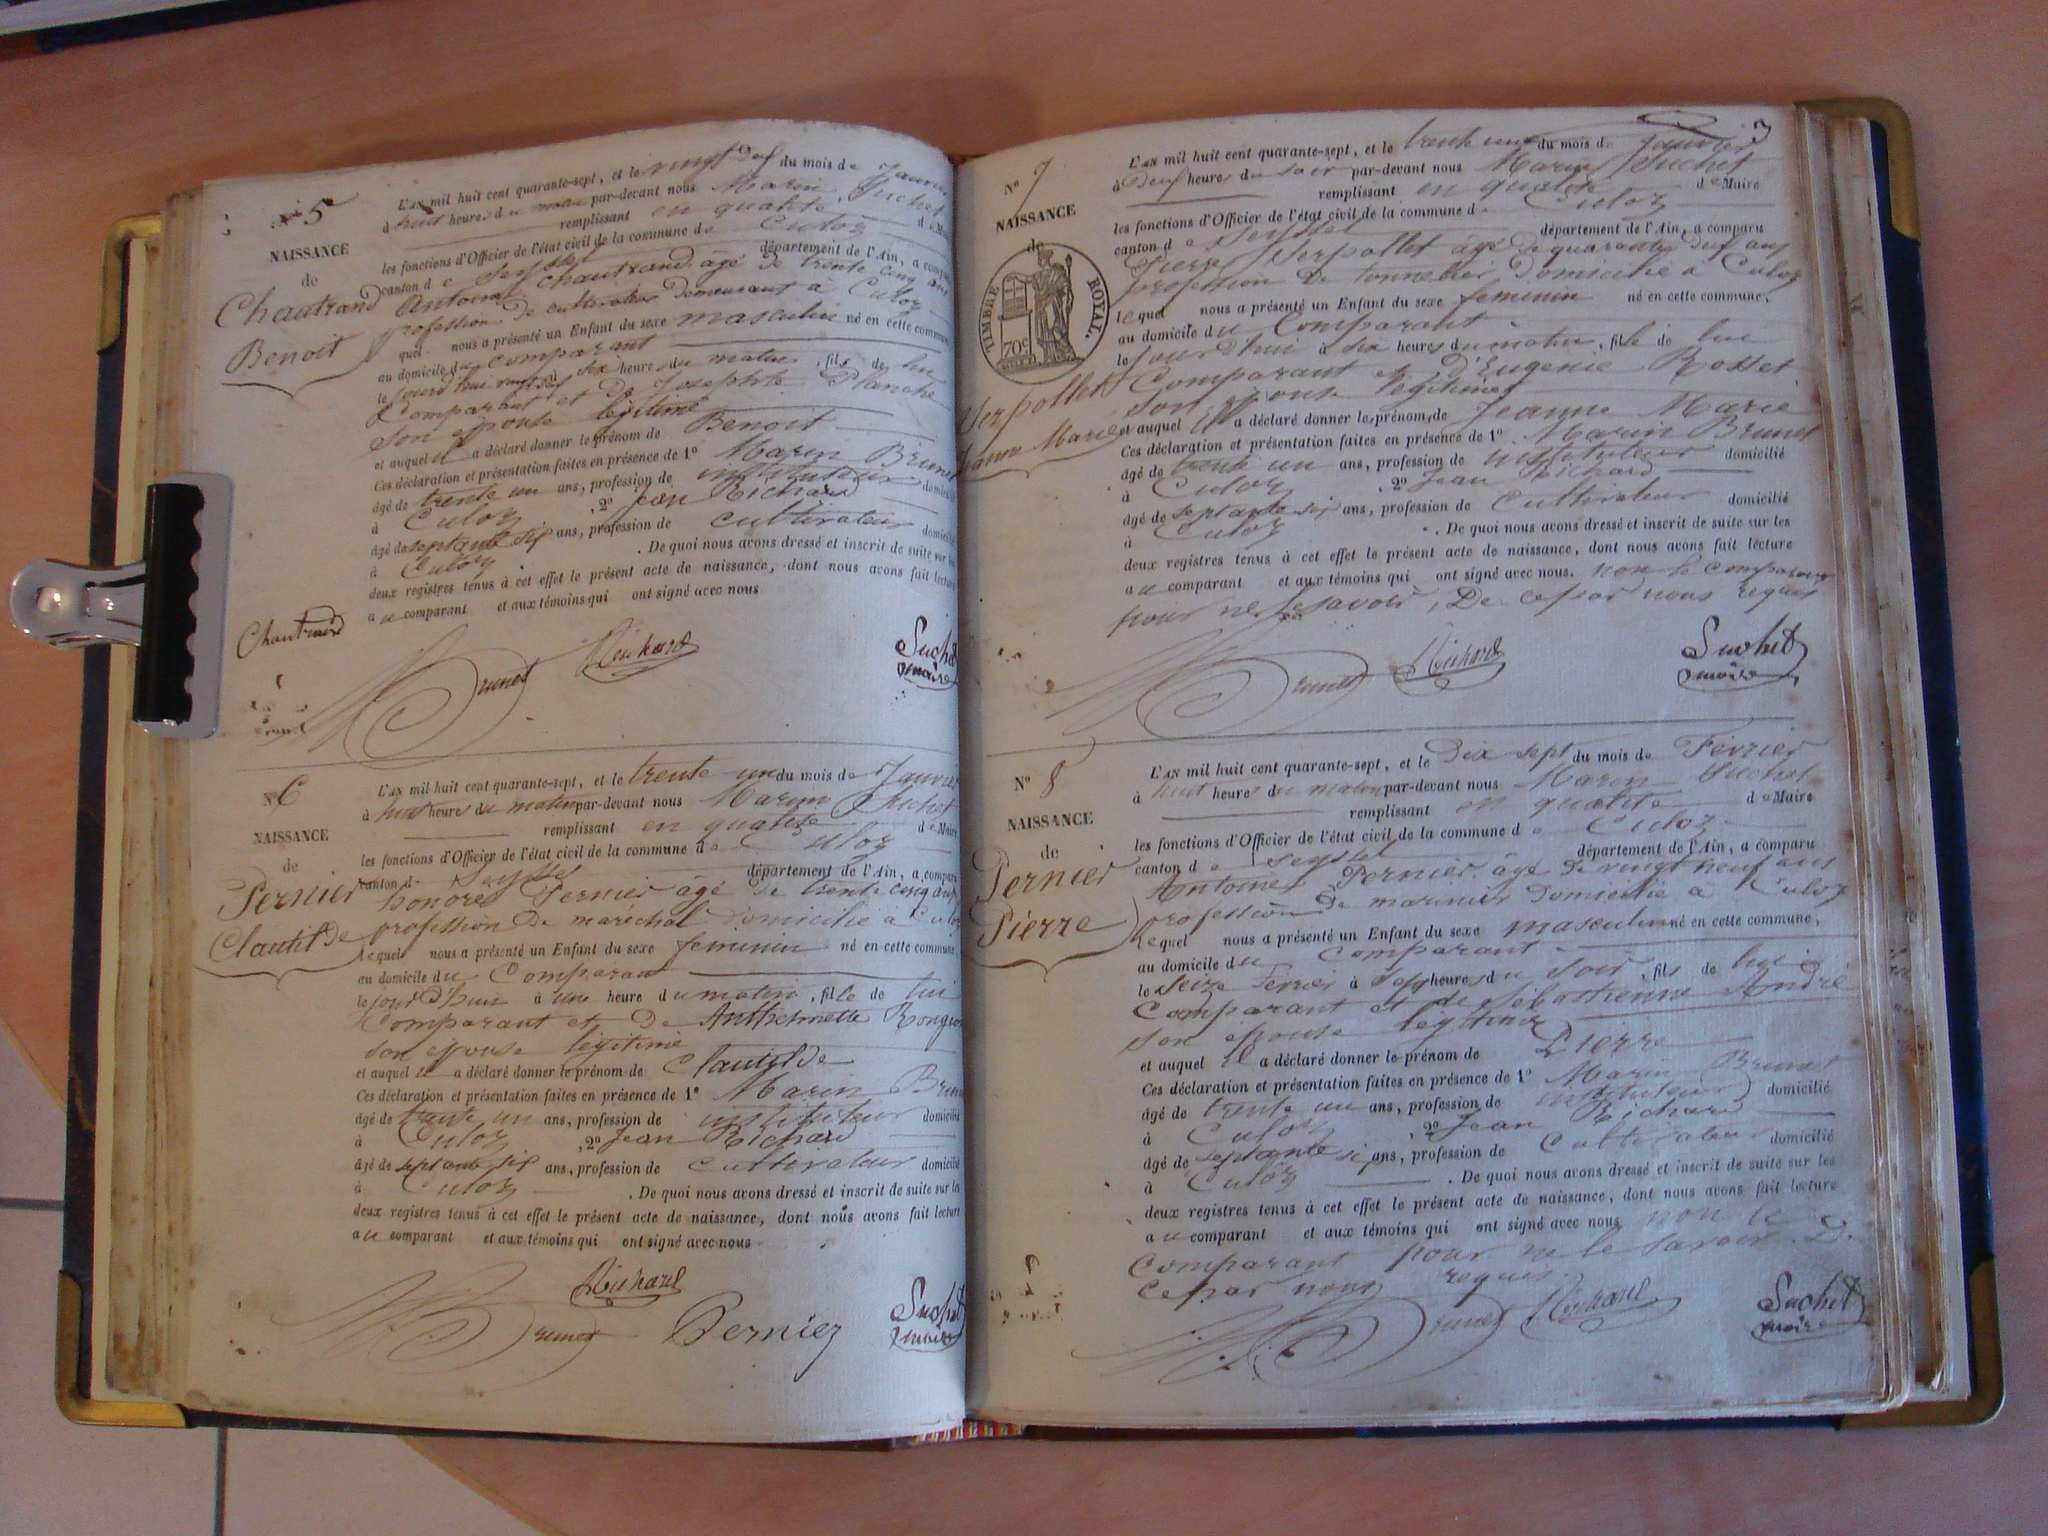 N° 5
NAISSANCE
de
Chautrand
Benoit
L'AN mil huit cent quarante-sept, et le vingt neuf du mois de Janvier
à huit heures du matin par-devant nous Marin Suchet
remplissant en qualité de Maire
les fonctions d'Officier de l'état civil de la commune de Culoz
canton de Seyssel département de l'Ain, a comparu
Antoine Chautrand âgé de trente cinq ans
profession de cultivateur demeurant à Culoz
quel nous a présenté un Enfant du sexe masculin né en cette commune
au domicile du comparant
le jourd'hui à six heures du matin, fils de lui
Comparant et de Josephte Planche
son epouse légitime
et auquel il a déclaré donner le prénom de Benoit
Ces déclaration et présentation faites en présence de 1° Marin Brunet
âgé de trente un ans, profession de instituteur domicilié
à Culoz, 2° Jean Richard
âgé de septante six ans, profession de cultivateur domicilié
à Culoz. De quoi nous avons dressé et inscrit de suite sur les
deux registres tenus à cet effet le présent acte de naissance, dont nous avons fait lecture
au comparant et aux témoins qui ont signé avec nous
Chautrand
Brunet Richard Suchet
maire
N° 6
NAISSANCE
de
Pernier
Clautilde
L'AN mil huit cent quarante-sept, et le trente un du mois de Janvier
à huit heures du matin par-devant nous Marin Suchet
remplissant en qualité de Maire
les fonctions d'Officier de l'état civil de la commune de Culoz
canton de Seyssel département de l'Ain, a comparu
honoré Pernier âgé de trente cinq ans
profession de maréchal domicilié à Culoz
lequel nous a présenté un Enfant du sexe feminin né en cette commune
au domicile du Comparant
le jour d'hui à une heure du matin, fille de lui
Comparant et de Anthelmette
son epouse légitime
et auquel il a déclaré donner le prénom de Clautilde
Ces déclaration et présentation faites en présence de 1° Marin Brunet
âgé de trente un ans, profession de instituteur domicilié
à Culoz, 2° Jean Richard
âgé de septante six ans, profession de Cultivateur domicilié
à Culoz. De quoi nous avons dressé et inscrit de suite sur les
deux registres tenus à cet effet le présent acte de naissance, dont nous avons fait lecture
au comparant et aux témoins qui ont signé avec nous
Richard
Brunet Pernier Suchet
maire
3
N° 7
NAISSANCE
de
TIMBRE ROYAL.
70c
Serpollet
Jeanne Marie
L'AN mil huit cent quarante-sept, et le trente un du mois de Janvier
à Deux heures du soir par-devant nous Marin Suchet
remplissant en qualité de Maire
les fonctions d'Officier de l'état civil de la commune de Culoz
canton de Seyssel département de l'Ain, a comparu
Pierre Serpollet âgé de quarante deux ans
profession de tonnelier domicilié à Culoz
lequel nous a présenté un Enfant du sexe feminin né en cette commune,
au domicile du Comparant
le jourd'hui à six heures du matin, fille de lui
Comparant et d'Eugenie Rosset
son epouse legitime
et auquel il a déclaré donner le prénom de Jeanne Marie
Ces déclaration et présentation faites en présence de 1° Marin Brunet
âgé de trente un ans, profession de instituteur domicilié
à Culoz, 2° Jean Richard
âgé de septante six ans, profession de Cultivateur domicilié
à Culoz. De quoi nous avons dressé et inscrit de suite sur les
deux registres tenus à cet effet le présent acte de naissance, dont nous avons fait lecture
au comparant et aux témoins qui ont signé avec nous. non le comparant
pour ne le savoir, De ce par nous requis
Brunet Richard Suchet
maire
N° 8
NAISSANCE
de
Pernier
Pierre
L'AN mil huit cent quarante-sept, et le Dix sept du mois de Février
à huit heures du matin par-devant nous Marin Suchet
remplissant en qualité de Maire
les fonctions d'Officier de l'état civil de la commune de Culoz
canton de Seyssel département de l'Ain, a comparu
Antoine Pernier âgé de vingt neuf ans
profession de marinier domicilié à Culoz
lequel nous a présenté un Enfant du sexe masculin né en cette commune,
au domicile du comparant
le seize Fevrier à sept heures du soir, fils de lui
Comparant et de Sébastienne André
son epouse légitime
et auquel il a déclaré donner le prénom de Pierre
Ces déclaration et présentation faites en présence de 1° Marin Brunet
âgé de trente un ans, profession de instituteur domicilié
à Culoz, 2° Jean Richard
âgé de septante six ans, profession de Cultivateur domicilié
à Culoz. De quoi nous avons dressé et inscrit de suite sur les
deux registres tenus à cet effet le présent acte de naissance, dont nous avons fait lecture
au comparant et aux témoins qui ont signé avec nous non le
Comparant pour ne le savoir. De
ce par nous requis
Brunet Richard Suchet
maire